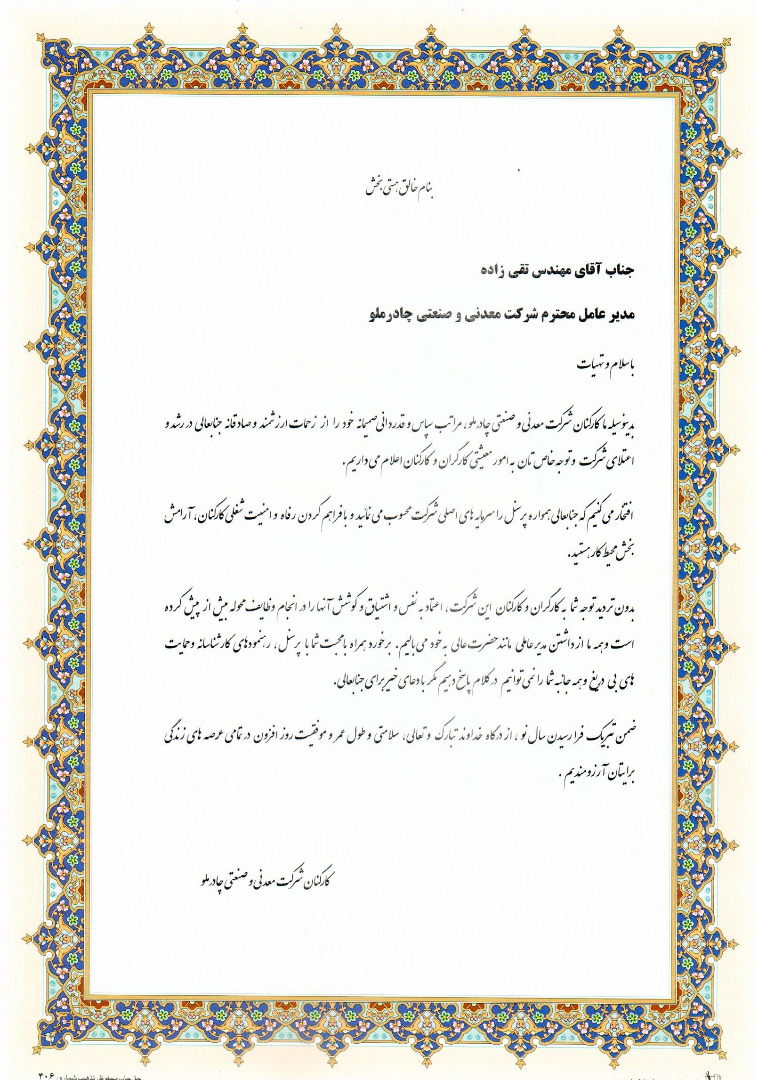 بنام خالق هستی بخش
جناب آقای مهندس تقی زاده
مدیر عامل محترم شرکت معدنی و صنعتی چادرملو
باسلام و تهیات
بدینوسیله ما کارکنان شرکت معدنی و صنعتی چادرملو، مراتب سپاس و قدردانی صمیمانه خود را از زحمات ارزشمند و صادقانه جنابعالی در رشد و
اعتلای شرکت و توجه خاص تان به امور معیشتی کارگران و کارکنان اعلام می داریم.
افتخار می کنیم که جنابعالی همواره پرسنل را سرمایه های اصلی شرکت محسوب می نمائید و با فراهم کردن رفاه و امنیت شغلی کارکنان، آرامش
بخش محیط کار هستید.
بدون تردید توجه شما به کارگران و کارکنان این شرکت، اعتماد به نفس و اشتیاق و کوشش آنها را در انجام وظایف محوله بیش از پیش کرده
است و همه ما از داشتن مدیر عاملی مانند حضرت عالی به خود می بالیم. برخورد همراه با محبت شما با پرسنل، رهنمودهای کارشناسانه و حمایت
های بی دریغ و همه جانبه شما را نمی توانیم در کلام پاسخ دهیم مگر با دعای خیر برای جنابعالی.
ضمن تبریک فرا رسیدن سال نو، از درگاه خداوند تبارک و تعالی، سلامتی و طول عمر و موفقیت روز افزون در تمامی عرصه های زندگی
برایتان آرزومندیم.
کارکنان شرکت معدنی و صنعتی چادرملو